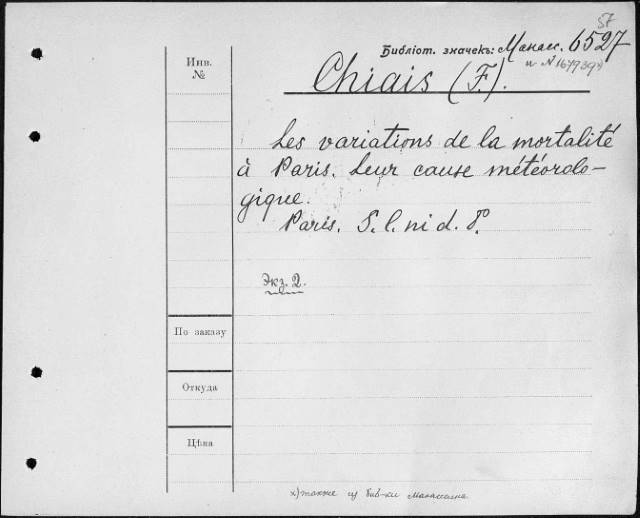 57
Библіот. значекъ: Манасс. 6527
и № 167939 x)
Инв.
№
Chiais (F.).
Les variations de la mortalité
à Paris. Leur cause météorolo-
gique.
Paris. S. l. ni d. 8°.
Экз. 2.
По заказу
Откуда
Цѣна
x) также из биб-ки Манассеина